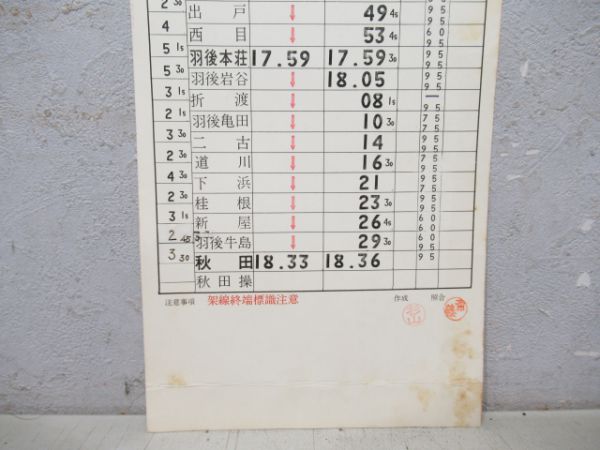 2 30
出戸 ↓ 49 45 95
4
西目 ↓ 53 45 60 95
5 15
羽後本荘 17.59 17.59 30 90 95
5 30
羽後岩谷 ↓ 18.05
3 15
折渡 ↓ 08 15 95
2 15
羽後亀田 ↓ 10 30 75 95
3 30
二古 ↓ 14 75 95
2 30
道川 ↓ 16 30 75 95
4 30
下浜 ↓ 21 75 95
2 30
桂根 ↓ 23 30 95
3 15
新屋 ↓ 26 45 60 60
2 45
羽後牛島 ↓ 29 30 60 95
3 30
秋田 18.33 18.36 95
秋田操
注意事項 架線終端標識注意 作成 照合